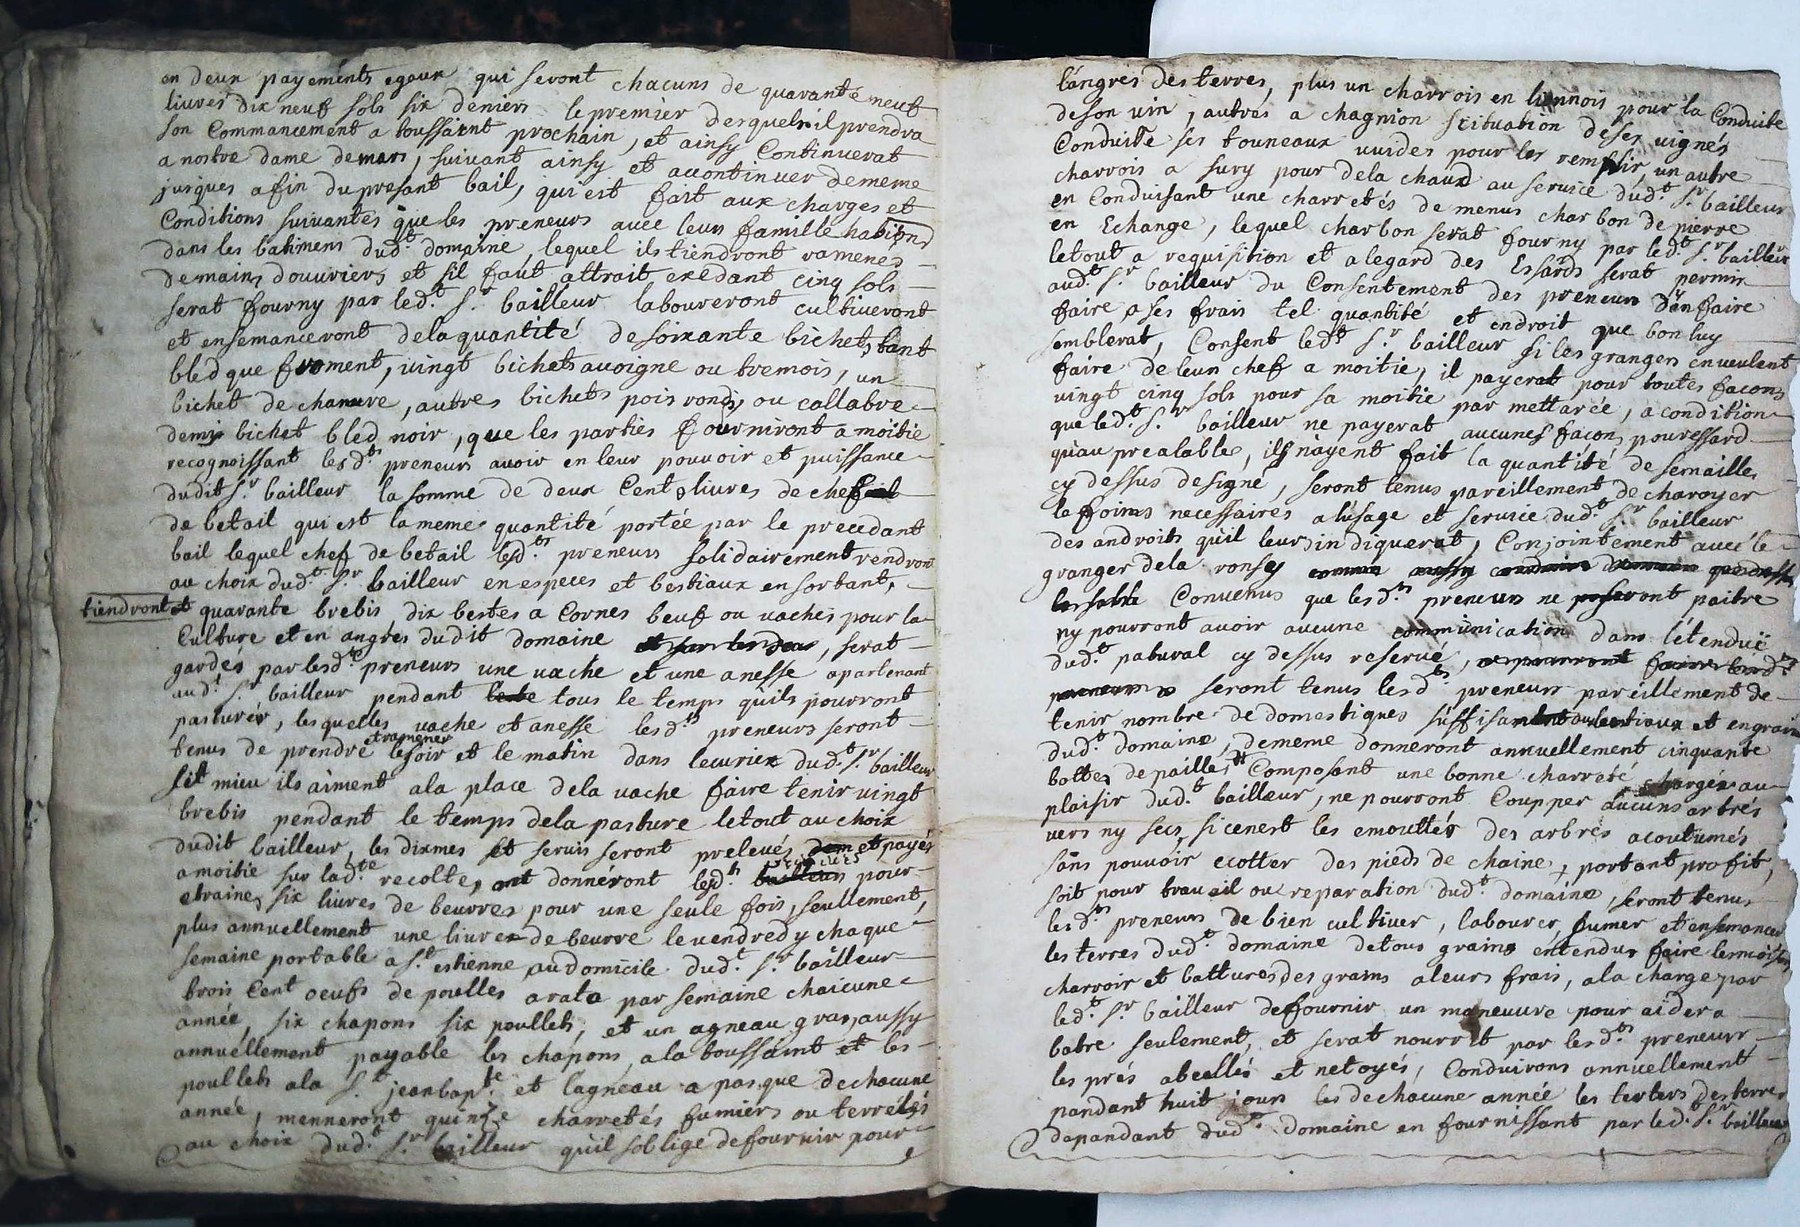 en deux payements egaux qui seront chacuns de quarante neuf
livres dix neuf sols six deniers le premier desquels il prendra
son Commancement a toussaint prochain, et ainsy Continuerat
a nostre dame de mars, suivant ainsy et acontinuer dememe
jusques afin du presant bail, qui est fait aux charges et
Conditions suivantes que les preneurs avec leur famille habiteront
dans les batimens dud.t domaine, lequel ils tiendront ramenes
de mains douvriers et sil faut attrait exedant cinq sols
serat fourny par led.t S.r bailleur laboureront cultiveront
et ensemanceront dela quantité de soixante bichets tant
bled que froment, vingt bichets avoigne ou tremois, un
bichet de chanvre, autres bichets pois ronds, ou callabre
demy bichet bled noir, que les parties fourniront a moitie
recognoissant lesd.ts preneurs avoir en leur pouvoir et puissance
dudit S.r bailleur la somme de deux Cents livres de chef
de betail qui est la meme quantité portée par le precedant
bail lequel chef de betail lesd.ts preneurs solidairement rendront
au choix dud.t S.r bailleur en especes et bestiaux en sortant,
tiendront quarante brebis dix bestes a Cornes beuf ou vaches pour la
Culture et en angrès dudit domaine, serat
gardés par lesd.ts preneurs une vache et une anesse apartenant
aud.t S.r bailleur pendant tous le temps quils pourront
pasturér, lesquelles vache et anesse lesd.ts preneurs seront
tenus de prendre et ramener le soir et le matin dans lecurier dud.t S.r bailleur
sit mieu ils aiment ala place dela vache faire tenir vingt
brebis pendant le temps dela pasture letout au choix
dudit bailleur, les dixmes et servis seront prelevés et payés
a moitie sur lad.te recolte, donnéront lesd.ts preneurs pour
etraines six livres de beurres pour une seule fois, seullement,
plus annuellement une livre de beurre le vendredy chaque
semaine portable a S.t estienne au domicile dud.t S.r bailleur
trois Cent oeufs de poulles arata par semaine chaicune
année, six chapons six poullets, et un agneau gras, aussy
annuéllement payable les chapons ala toussaint et les
poullets ala S.t jean bap.te et lagneau a pasque dechacune
année, menneront quinze charretés fumiers ou terreilés
au choix dud.t S.r bailleur quil soblige defournir pour
langres des terres, plus un charrois en lionnois pour la Conduite
deson vin, autres a chagnion scituation deses vignes
Conduite ses touneaux vuides pour les remplir, un autre
charrois a sury pour dela chaux au service dud.t S.r bailleur
en Conduisant une charretés de menus charbon de pierre
en Echange, lequel charbon serat fourny par led.t S.r bailleur
letout a requisition et a legard des Essards serat permis
aud.t S.r bailleur du Consentement des preneurs d'en faire
faire a ses frais tel quantité et endroit que bon luy
semblerat, Consent led.t S.r bailleur si les grangers en veulent
faire de leur chef a moitie, il payerat pour toutes facons
vingt cinq sols pour sa moitie par mettarée, a condition
que led.t S.r bailleur ne payerat aucunes facons pour essard
qu'au prealable, ils n'ayent fait la quantité de semailles
cy dessus designé, seront tenus pareillement de charoyer
la foins necessaires a lusage et service dud.t S.r bailleur
des androits quil leurs indiquerat, Conjointement avec le
granger dela ronsey
Convenus que lesd.ts preneurs ne paitre
ny pourront avoir aucune communication dans létenduë
dud.t patural cy dessus reservé,
seront tenus lesd.ts preneurs pareillement de
tenir nombre de domestiques suffisamment et engrais
dud.t domaine, dememe donneront annuellement cinquante
bottes de pailles Composant une bonne charreté chargée au
plaisir dud.t bailleur, ne pourront Coupper aucuns arbrés
vers ny secs, si cenest les emouttés des arbres acoutumés
sans pouvoir ecotter des pieds de chaine, portant profit,
soit pour travail ou reparation dud.t domaine, seront tenus
lesd.ts preneurs de bien cultiver, labourer, fumer et ensemancer
les terres dud.t domaine de tous grains entendus faire lermoissons
charroir et battures des grains aleurs frais, ala charge par
led.t S.r bailleur defournir un maneuvre pour aider a
batre seulement, et serat nourrit par lesd.ts preneurs
les prés abeallés et netoyés, Conduirons annuellement
pandant huit jours les dechacune année les terters des terres
dapandant dud.t domaine en fournissant par led.t S.r bailleur